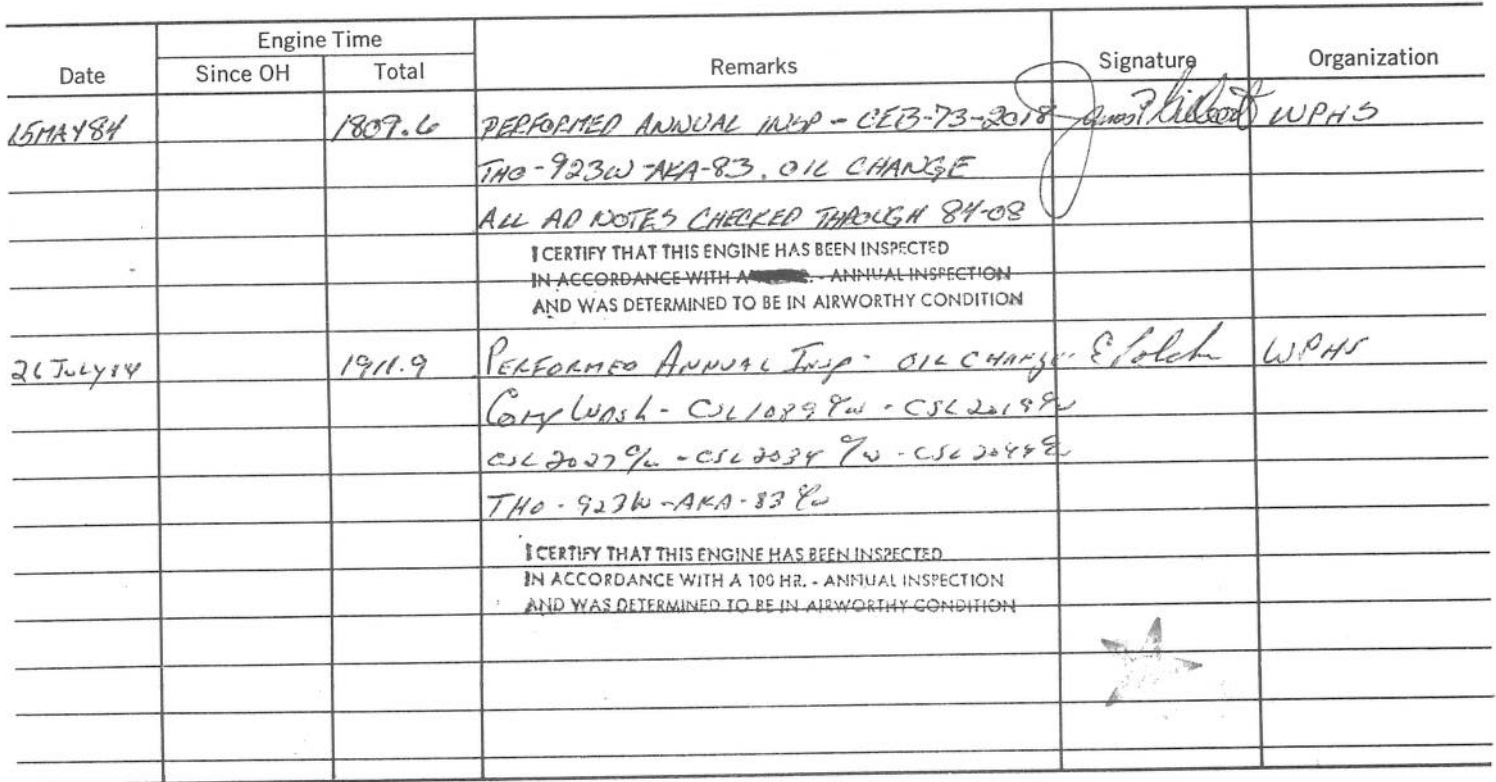 Engine Time
Date Since OH Total Remarks Signature Organization
15MAY84 1809.6 PERFORMED ANNUAL INSP - CEB-73-2018 WPHS
THO-923W-AKA-83. OIL CHANGE
ALL AD NOTES CHECKED THROUGH 84-08
I CERTIFY THAT THIS ENGINE HAS BEEN INSPECTED
IN ACCORDANCE WITH A - ANNUAL INSPECTION
AND WAS DETERMINED TO BE IN AIRWORTHY CONDITION
JULY84 1911.9 PERFORMED ANNUAL INSP - OIL CHANGE WPHS
Comp Wash - CSL1089 c/w - CSL2019 c/w
CSL2027 c/w - CSL2034 c/w - CSL2044 c/w
THO-923W-AKA-83 c/w
I CERTIFY THAT THIS ENGINE HAS BEEN INSPECTED
IN ACCORDANCE WITH A 100 HR. - ANNUAL INSPECTION
AND WAS DETERMINED TO BE IN AIRWORTHY CONDITION